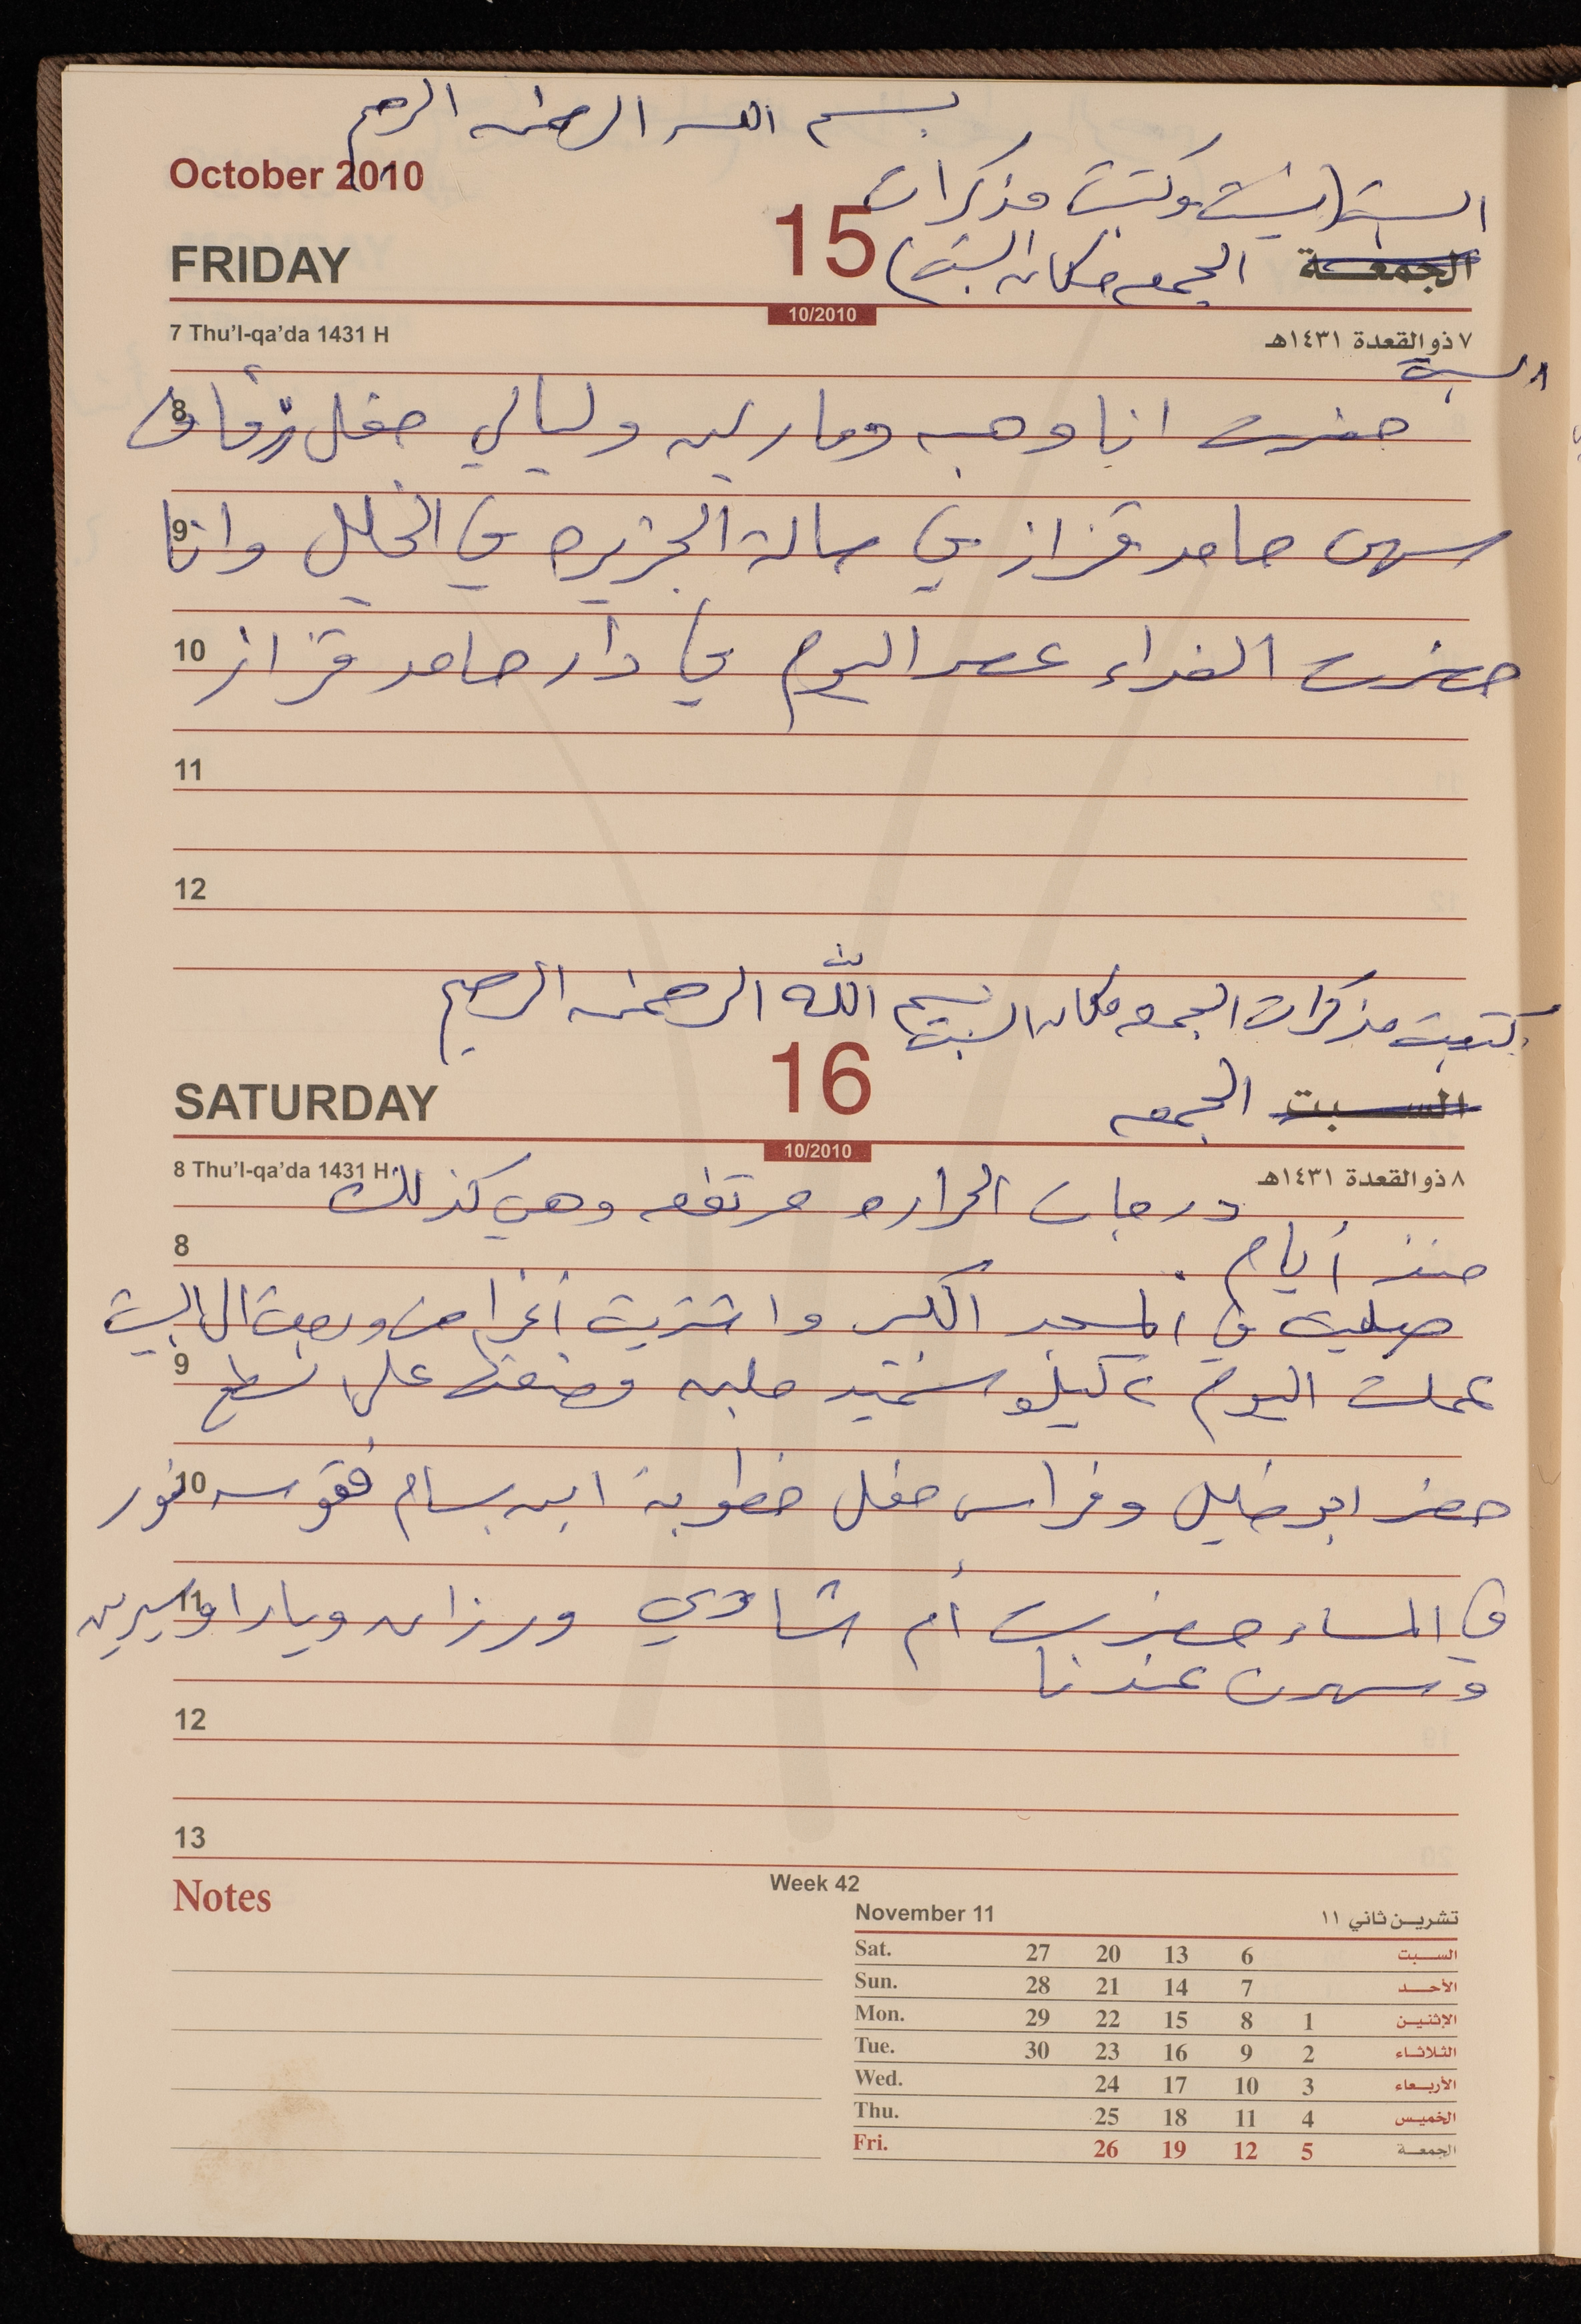 بسم الله الرحمن الرحيم
October 2010
السبت (نسيت وكتبت مذكرات
FRIDAY 15 الجمعة الجمعه مكان السبت)
10/2010
7 Thu'l-qa'da 1431 H ٧ ذو القعدة ١٤٣١هـ
٨ السبت
8 حضرت انا وهبه ومارلين وليالي حفل زفاف
9 سهى حامد قزاز في صالة الجزيره في الخليل وانا
10 حضرت الغداء عصر اليوم في دار حامد قزاز
11
12
كتبت مذكرات الجمعه مكان السبت بسم الله الرحمن الرحيم
SATURDAY 16 السبت الجمعه
10/2010
8 Thu'l-qa'da 1431 H ٨ ذو القعدة ١٤٣١هـ
درجات الحراره مرتفعه وهي كذلك
8 منذ أيام
صليت في المسجد الكبير واشتريت أغراض ورجعت الى البيت
9 عملت اليوم ٢ كيلو سميد حلبه وضعتها على السطح
10 حضر ابو خليل وفراس حفل خطوبة ابن بسام فقوسه نور
11 في المساء حضرت أم شادي ورزان ويارا وسيرين
وسهرت عندنا
12
13
Notes
Week 42
November 11 تشريـن ثاني ١١
Sat. 27 20 13 6 السـبت
Sun. 28 21 14 7 الأحـد
Mon. 29 22 15 8 1 الإثنيـن
Tue. 30 23 16 9 2 الثلاثـاء
Wed. 24 17 10 3 الأربـعاء
Thu. 25 18 11 4 الخميـس
Fri. 26 19 12 5 الجمعـة